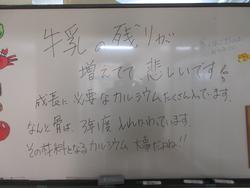 牛乳の残りが
増えてて悲しいです。
成長に必要なカルシウムたくさん入っています。
なんと骨は、3年度入れかわっています。
その材料となるカルシウム大事だよね!!